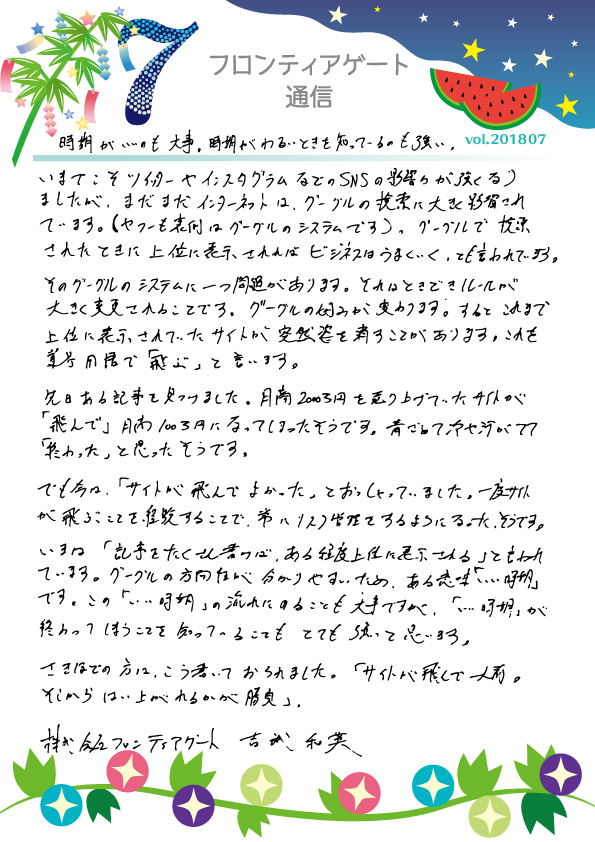 7
フロンティアゲート
通信
vol.201807
時期がいいのも大事。時期がわるいときを知っているのも強い。
いまでこそツイッターやインスタグラムなどのSNSの影響力が強くなり
ましたが、まだまだインターネットは、グーグルの検索に大きく影響され
ています。(ヤフーも裏側はグーグルのシステムです)。グーグルで検索
されたときに上位に表示されればビジネスはうまくいく、とも言われています。
そのグーグルのシステムに一つ問題があります。それはときどきルールが
大きく変更されることです。グーグルの好みが変わります。するとこれまで
上位に表示されていたサイトが突然姿を消すことがあります。これを
業界用語で「飛ぶ」と言います。
先日ある記事を見つけました。月商2000万円を売り上げていたサイトが
「飛んで」月商100万円になってしまったそうです。青ざめて冷や汗がでて
「終わった」と思ったそうです。
でも今は、「サイトが飛んでよかった」とおっしゃっていました。一度サイト
が飛ぶことを経験することで、常にリスク管理をするようになった、そうです。
いまは「記事をたくさん書けば、ある程度上位に表示される」ともいわれ
ています。グーグルの方向性が分かりやすいため、ある意味「いい時期」
です。この「いい時期」の流れにのることも大事ですが、「いい時期」が
終わってしまうことを知っていることもとても強いと思います。
さきほどの方は、こう書いておられました。「サイトが飛んで一人前。
そこからはい上がれるかが勝負」。
株式会社フロンティアゲート 吉成 和実